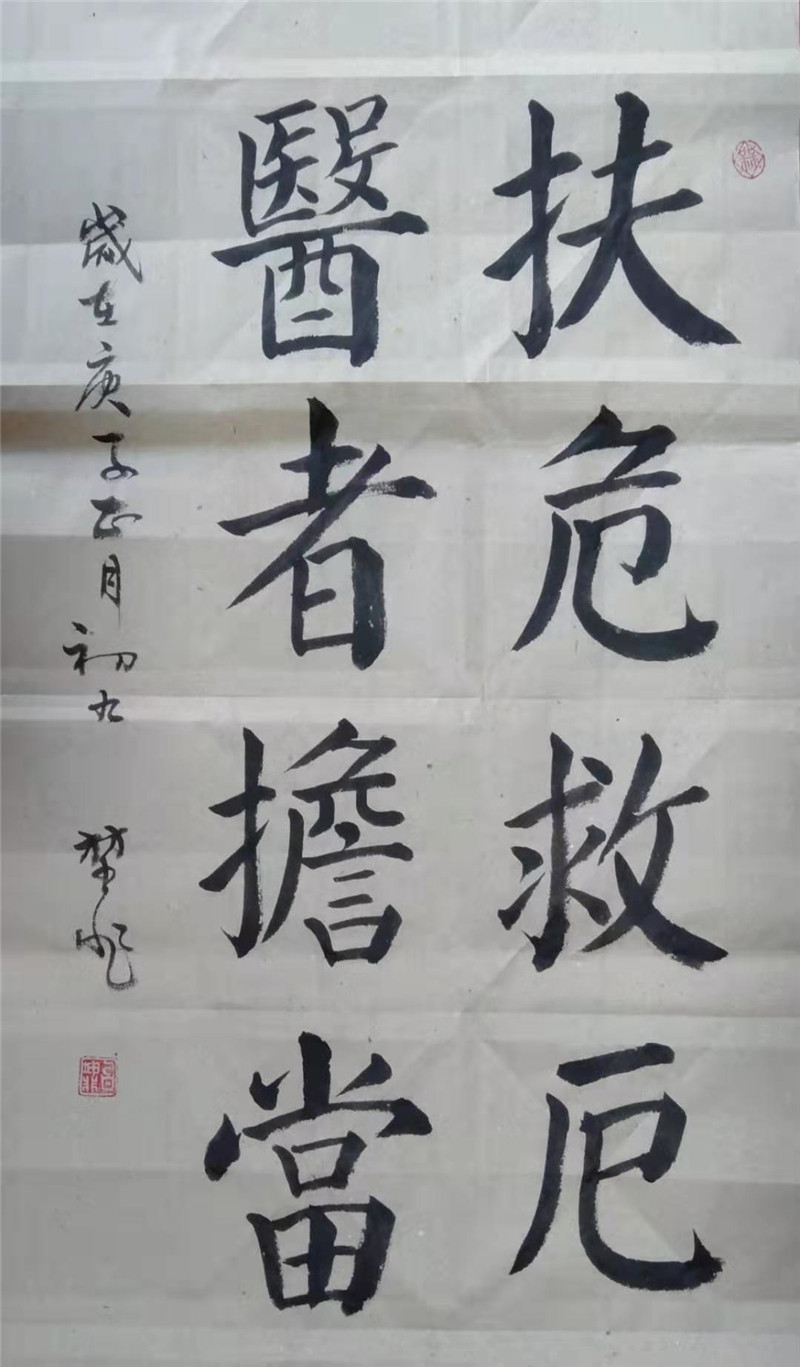 扶危救厄
醫者擔當
歲在庚子正月初九